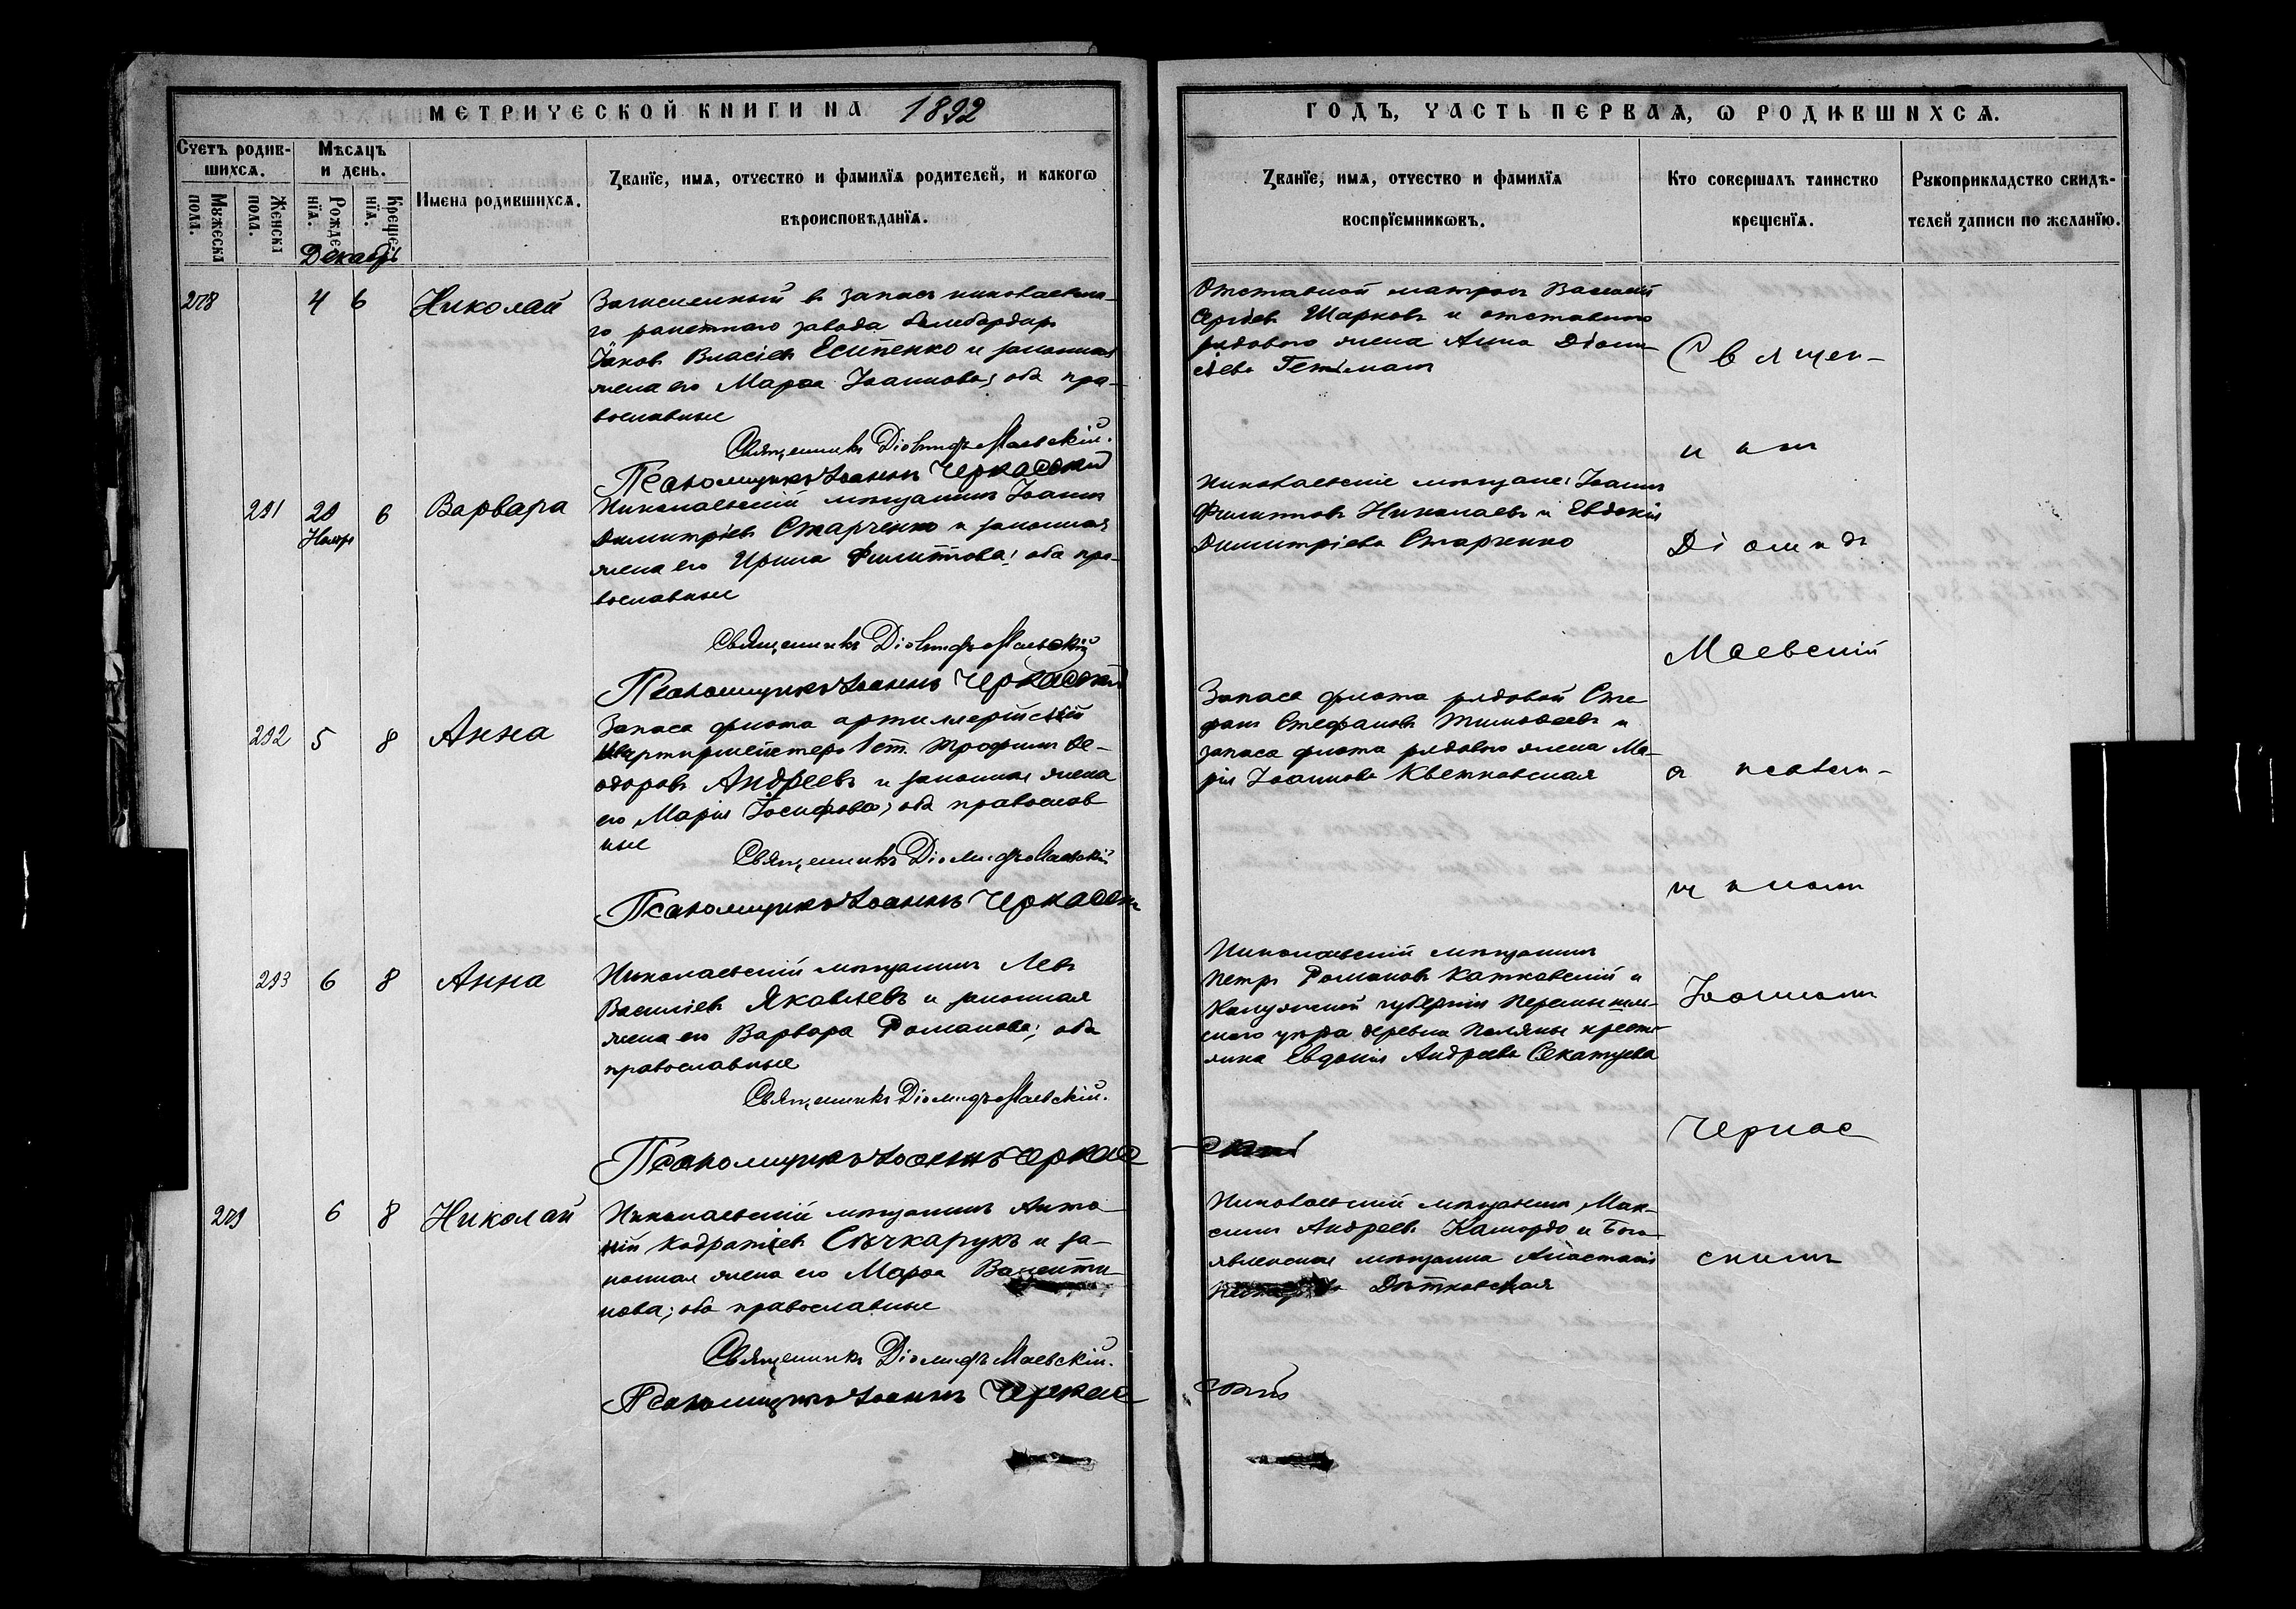 МЕТРИЧЕСКОЙ КНИГИ НА 1892
ГОДЪ, ЧАСТЬ ПЕРВАЯ, Ѡ РОДИВШИХСѦ.
Счетъ родив-
шихсѧ.
Мужеска
пола.
Женска
пола.
Мѣсѧцъ
и день.
Рожде-
нїѧ.
Креще-
нїѧ.
Имена родившихсѧ.
Званїе, имѧ, отчество и фамилїѧ родителей, и какогѡ
вѣроисповѣданїѧ.
Званїе, имѧ, отчество и фамилїѧ
воспрїемникѡвъ.
Кто совершалъ таинство
крещенїѧ.
Рукоприкладство свидѣ-
телей записи по желанїю.
Декабрь
278
4 6
Николай
Зачисленный в запасъ николаевска-
го ракетнаго завода бомбардиръ
Іаковъ Власіевъ Есипенко и законная
жена его Марѳа Іоаннова; оба пра-
вославные
Священникъ Діомидъ Маевскій.
Псаломщикъ Іоаннъ Черкасскій
Отставной матросъ Василій
Сергіевъ Шарковъ и отставного
рядового жена Анна Діони-
сіева Гетманъ
291
29
Ноябр
6
Варвара
Николаевскій мѣщанинъ Іоаннъ
Димитріевъ Старченко и законная
жена его Ирина Филиппова; оба пра-
вославные
Священникъ Діомидъ Маевскій
Псаломщикъ Іоаннъ Черкасскій
Николаевскіе мѣщане: Іоаннъ
Филипповъ Николаевъ и Евдокія
Димитріева Старченко
292
5
8
Анна
Запаса флота артиллерійскій
квартирмейстеръ 1 ст. Трофимъ Ѳе-
одоровъ Андреевъ и законная жена
его Марія Іосифова; оба православ
ные
Священникъ Діомидъ Маевскій
Псаломщикъ Іоаннъ Черкасскій
Запаса флота рядовой Сте
фанъ Стефановъ Тимофеевъ и
запаса флота рядового жена Ма-
рія Іоаннова Квятковская
293
6
8
Анна
Николаевскій мѣщанинъ Левъ
Василіевъ Яковлевъ и законная
жена его Варвара Романова; оба
православные
Священникъ Діомидъ Маевскій.
Псаломщикъ Іоаннъ Черкасскій
Николаевскій мѣщанинъ
Петръ Романовъ Катковскій и
Калужской губерніи Перемышль-
скаго уѣзда деревни Поляны кресть
янка Евдокія Андреева Секатуева
279
6
8
Николай
Николаевскій мѣщанинъ Анто
ній Кодратіевъ Сѣчкарукъ и за-
конная жена его Марѳа Валенти
нова; оба православные
Священникъ Діомидъ Маевскій.
Псаломщикъ Іоаннъ Черкасскій
Николаевскій мѣщанинъ Мак-
симъ Андреевъ Камордо и Бого
явленская мѣщанка Анастасія
Дѣтковская
Священ-
никъ
Діомидъ
Маевскій
съ псалом-
щикомъ
Іоанномъ
Черкас
скимъ